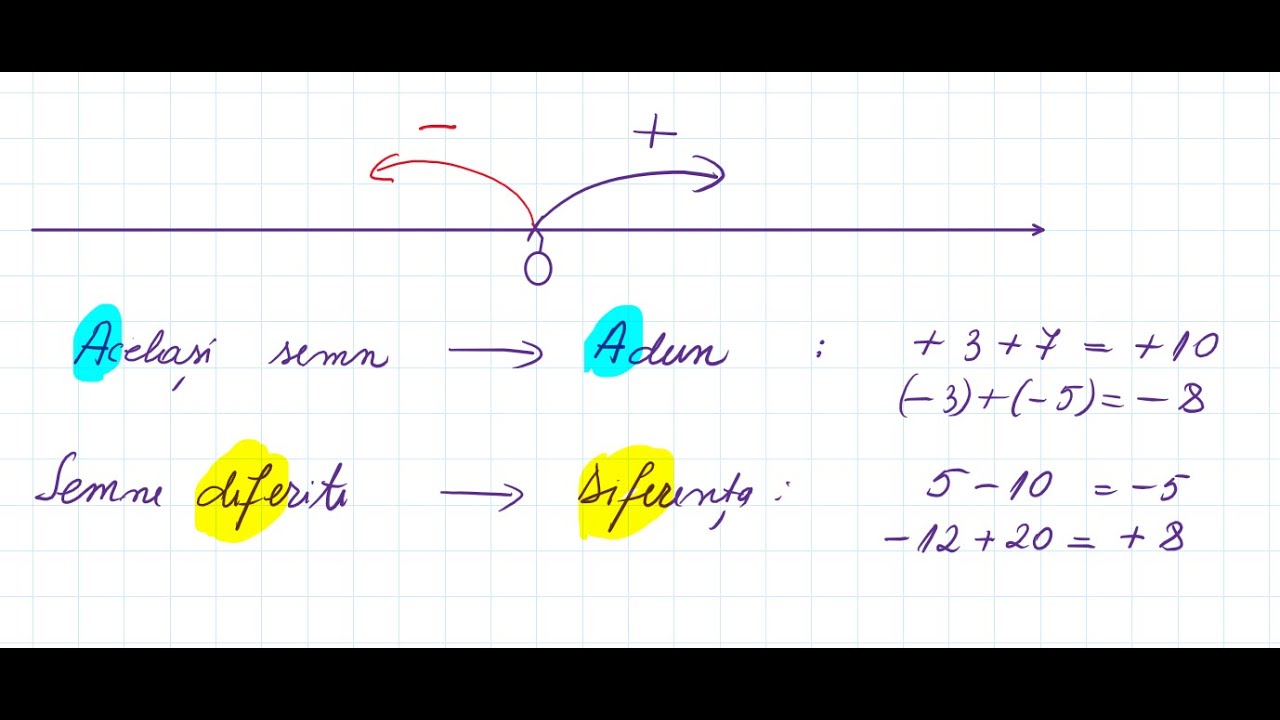 - +
0
Același semn → Adun : + 3 + 7 = + 10
(- 3) + (- 5) = - 8
Semne diferite → Diferența : 5 - 10 = - 5
- 12 + 20 = + 8